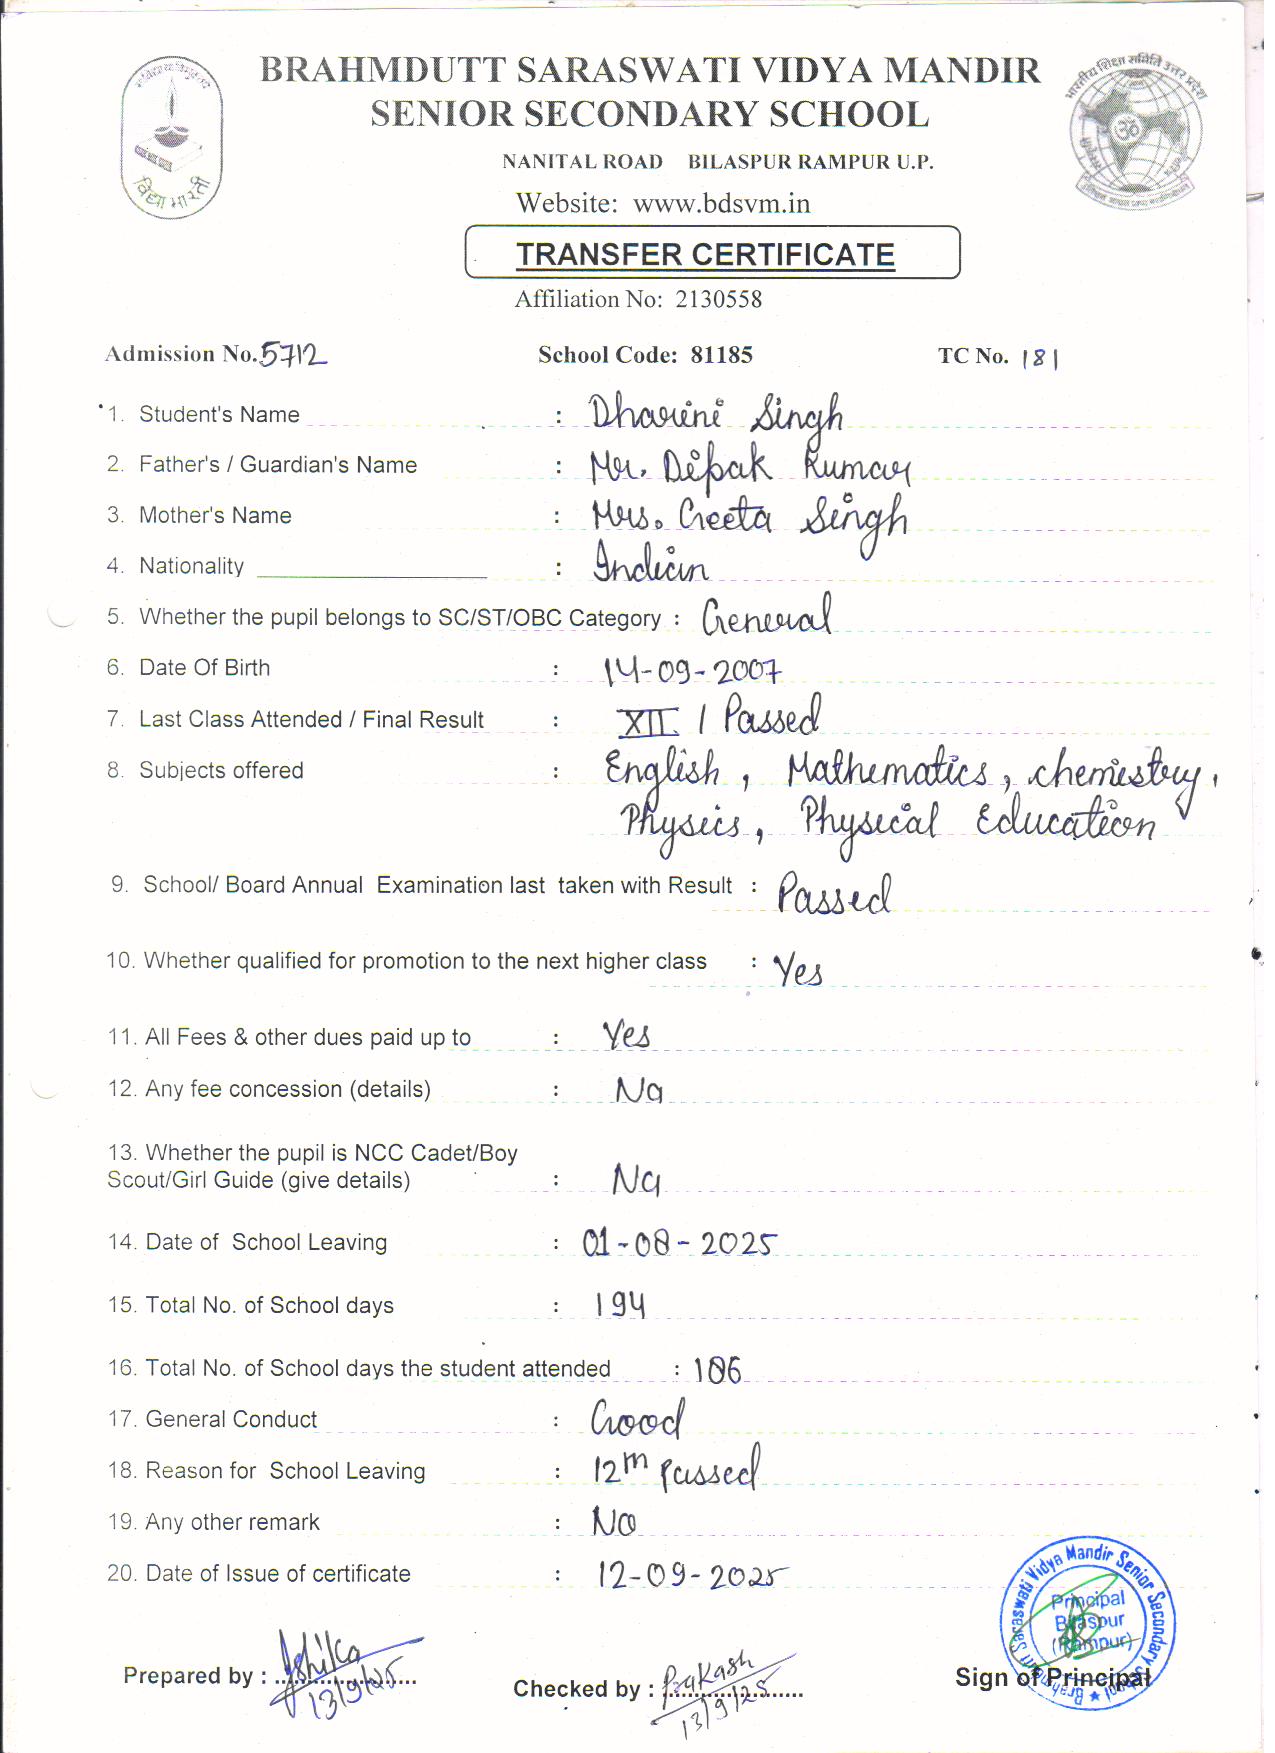 BRAHMDUTT SARASWATI VIDYA MANDIR
SENIOR SECONDARY SCHOOL
NANITAL ROAD BILASPUR RAMPUR U.P.
Website: www.bdsvm.in
विद्या भारती
भारतीय शिक्षा समिति उत्तर प्रदेश
TRANSFER CERTIFICATE
Affiliation No: 2130558
Admission No. 5712 School Code: 81185 TC No. 181
1. Student's Name : Dharini Singh
2. Father's / Guardian's Name : Mr. Dipak Kumar
3. Mother's Name : Mrs. Geeta Singh
4. Nationality : Indian
5. Whether the pupil belongs to SC/ST/OBC Category : General
6. Date Of Birth : 14-09-2007
7. Last Class Attended / Final Result : XII / Passed
8. Subjects offered : English, Mathematics, chemistry,
Physics, Physical Education
9. School/ Board Annual Examination last taken with Result : Passed
10. Whether qualified for promotion to the next higher class : Yes
11. All Fees & other dues paid up to : Yes
12. Any fee concession (details) : No
13. Whether the pupil is NCC Cadet/Boy
Scout/Girl Guide (give details) : No
14. Date of School Leaving : 01-08-2025
15. Total No. of School days : 194
16. Total No. of School days the student attended : 186
17. General Conduct : Good
18. Reason for School Leaving : 12th passed
19. Any other remark : No
20. Date of Issue of certificate : 12-09-2025
Brahmdutt Saraswati Vidya Mandir Senior Secondary School
Principal
Bilaspur
(Rampur)
Prepared by : Ishika Checked by : Prakash Sign of Principal
13/9/25 13/9/25